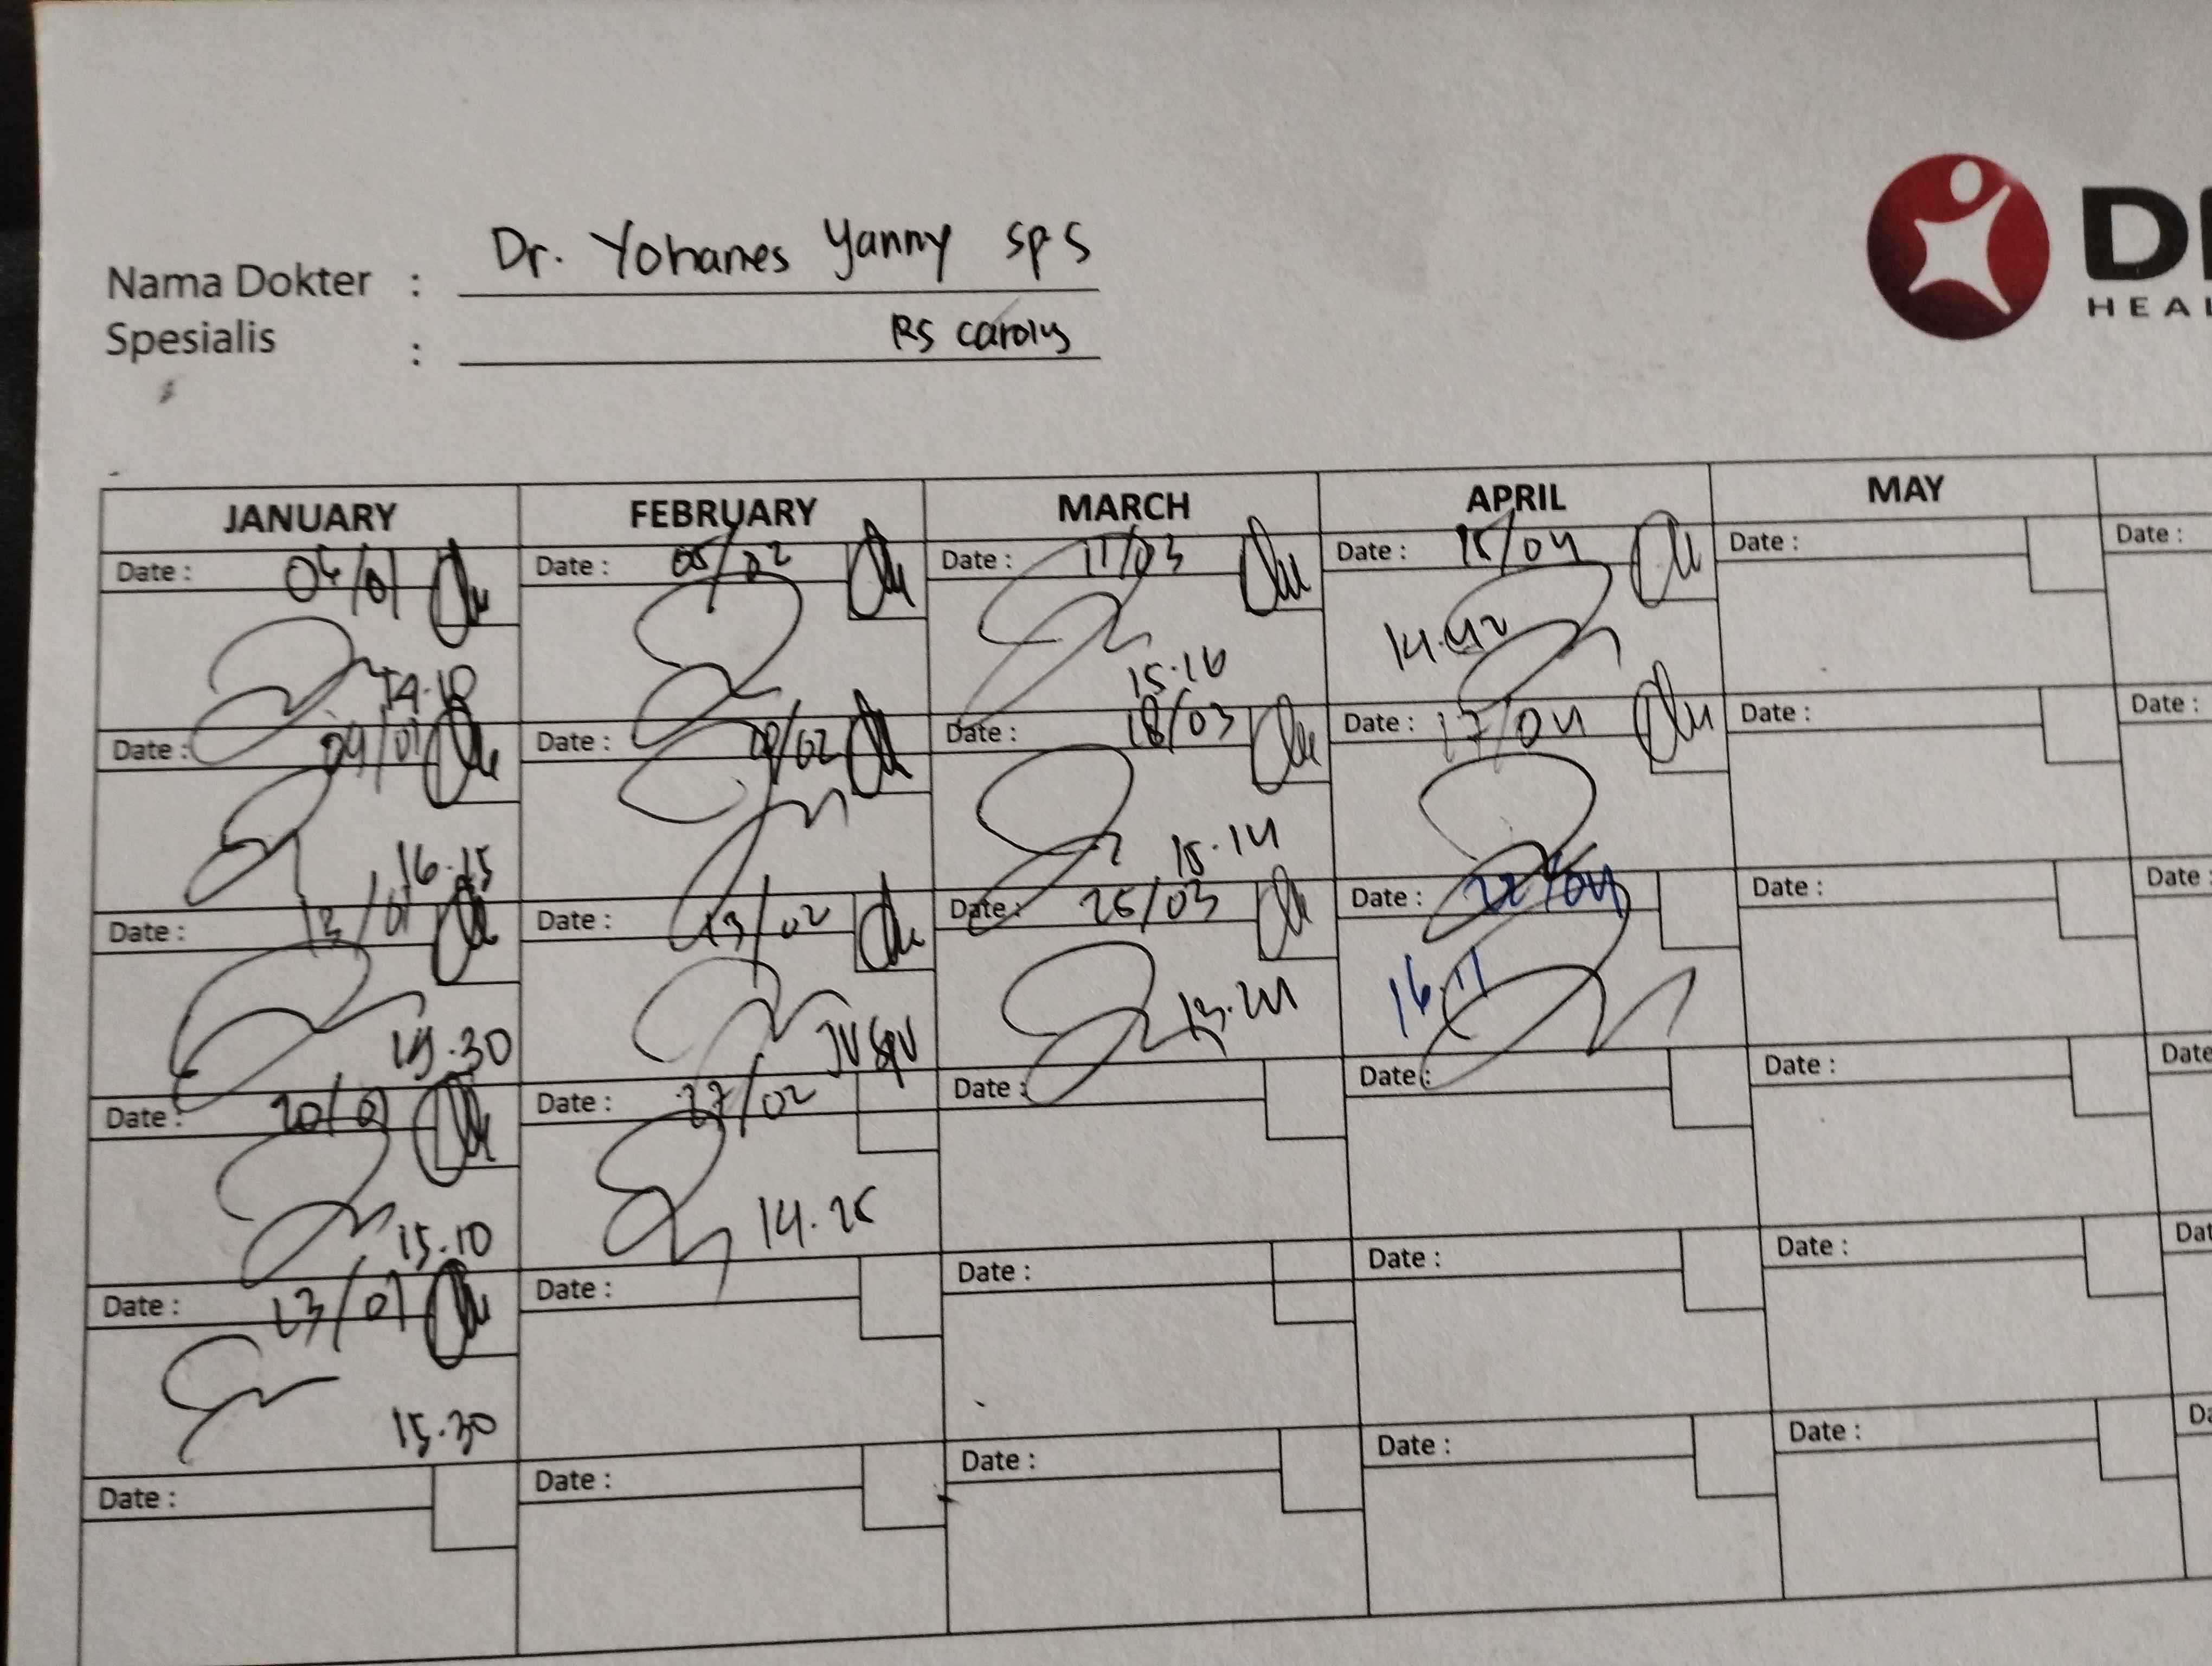 Nama Dokter : Dr. Yohanes Yanny SpS
Spesialis : RS carolus
HEAL
JANUARY FEBRUARY MARCH APRIL MAY
Date : /01 Date : 05/02 Date : 11/03 Date : 15/04 Date : Date :
14.18 15.16 14.42
Date : 09/01 Date : /02 Date : 18/03 Date : 17/04 Date : Date :
16.15 15.14
Date : 13/01 Date : 13/02 Date : 25/03 Date : 22/04 Date : Date :
.30 JV SPV 13.24 16.11
Date : 20/01 Date : 27/02 Date : Date : Date : Date
15.10 14.25
Date : 23/01 Date : Date : Date : Date :
15.30
Date : Date : Date : Date : Date :